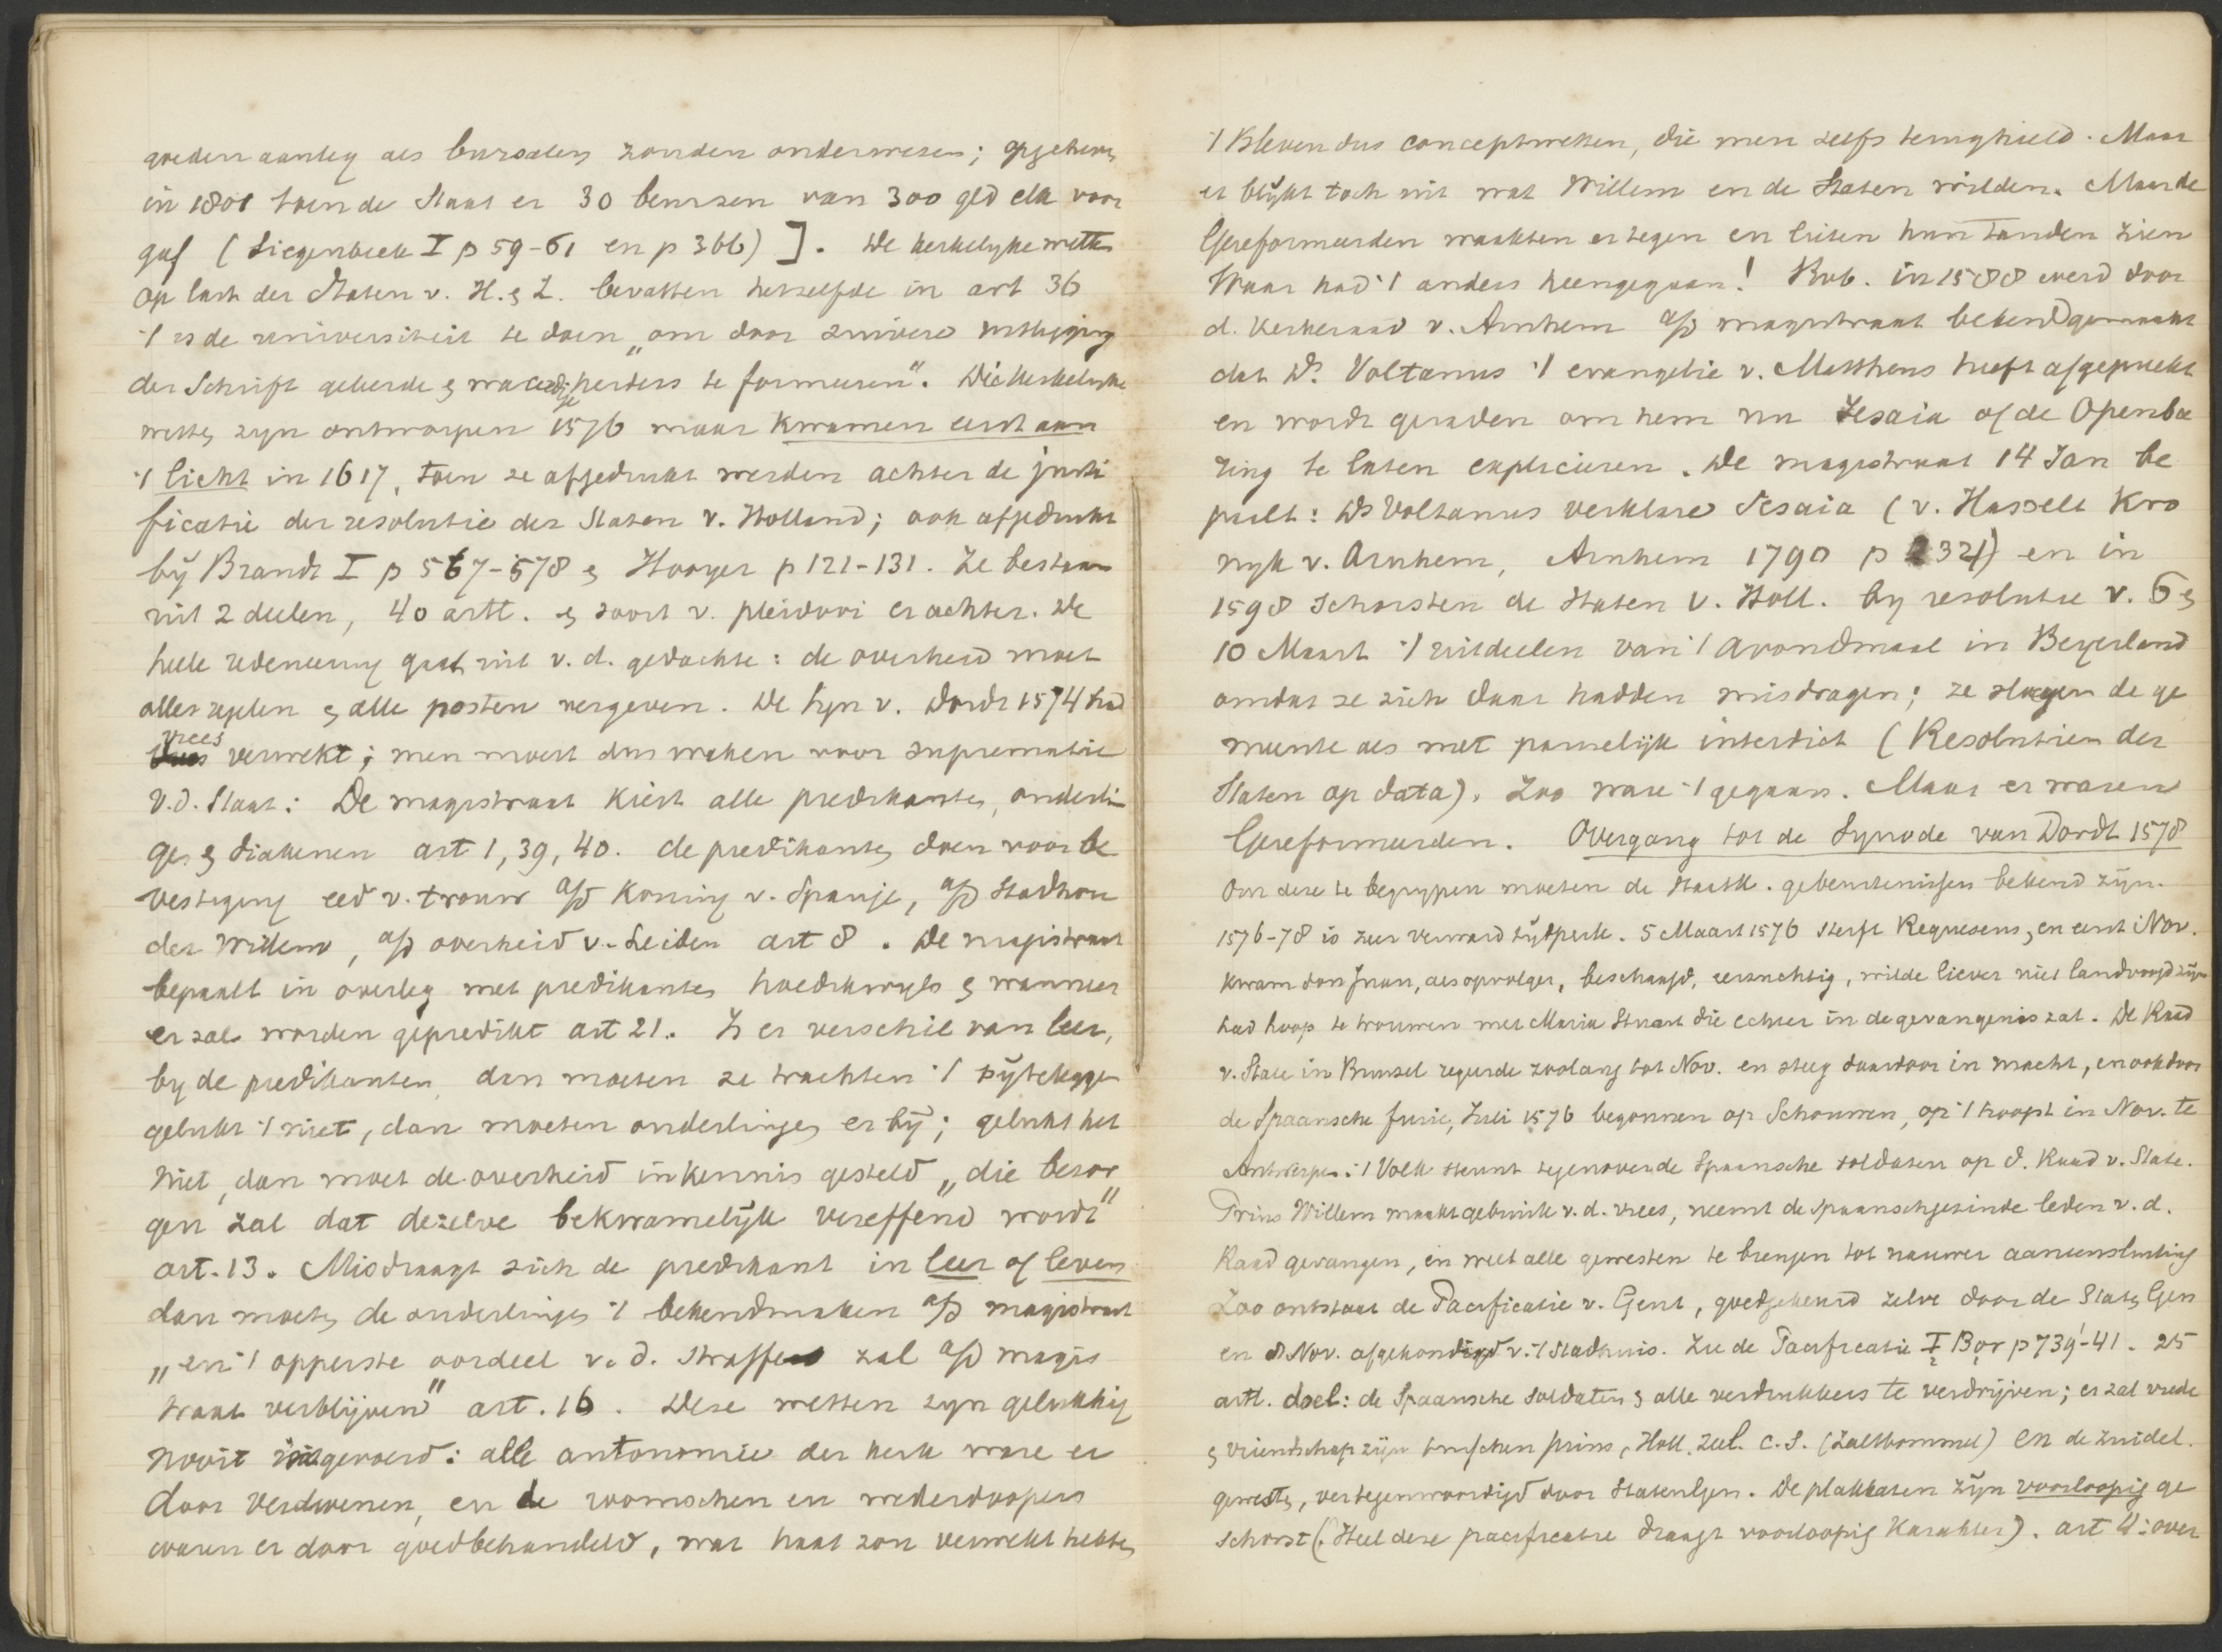 goeden aanleg als bursalen zouden onderwezen; opgeheven
in 1801 toen de Staat er 30 beurzen van 300 gld elk voor
gaf (Siegenbeek I p 59-61 en p 366) ]. De kerkelyke wetten
op last der Staten v. H. & Z. bevatten hetzelfde in art 36
't is de universiteit te doen „om door zuivere uitlegging
der Schrift geleerde & waardige herders te formeeren". Die kerkelyke
wetten zyn ontworpen 1576 maar kwamen eerst aan
't licht in 1617, toen ze afgedrukt werden achter de justi
ficatie der resolutie der Staten v. Holland; ook afgedrukt
bij Brandt I p 567-578 & Hooyer p 121-131. Ze bestaan
uit 2 deelen, 40 artt. & soort v. pleidooi er achter. De
heele redeneering gaat uit v. d. gedachte: de overheid moet
alles regelen & alle posten vergeven. De Syn v. Dordt 1574 had
vrees verwekt; men moest dus waken voor suprematie
v.d. Staat: De magistraat kiest alle predikanten, ouderlin
gen & diakenen art 1, 39, 40. de predikanten doen voor be
vestiging eed v. trouw a/d Koning v. Spanje, a/d Stadhou
der Willem, a/d overheid v. Leiden art 8. De magistraat
bepaalt in overleg met predikanten hoedikwyls & wanneer
er zal worden gepredikt art 21. Is er verschil van leer,
by de predikanten dan moeten ze trachten 't bijteleggen
gelukt 't niet, dan moeten ouderlingen er bij; gelukt het
niet, dan moet de overheid in kennis gesteld „die bezor
gen zal dat dezelve bekwamelijk vereffend wordt"
art. 13. Misdraagt zich de predikant in leer of leven
dan moeten de ouderlingen 't bekendmaken a/d magistraat
„en 't opperste oordeel v. d. straffen zal a/d magis
traat verblijven" art. 16. Deze wetten zyn gelukkig
nooit ingevoerd: alle autonomie der kerk ware er
door verdwenen, en de roomschen en wederdoopers
waren er door goed behandeld, wat haat zou verwekt hebben
't Bleven dus conceptwetten, die men zelfs terughield. Maar
er blijkt toch uit wat Willem en de Staten wilden. Maar de
Gereformeerden waakten er tegen en lieten hun tanden zien
Waar had 't anders heengegaan! Bvb. in 1588 werd door
d. kerkeraad v. Arnhem a/d magistraat bekendgemaakt
dat Ds. Voltanus 't evangelie v. Mattheus heeft afgepreekt
en wordt geraden om hem nu Jesaia of de Openba
ring te laten expliceeren. De magistraat 14 Jan be
paalt: Ds Voltanus verklare Jesaia (v. Hasselt Kro
nyk v. Arnhem, Arnhem 1790 p 232) en in
1598 schorsten de Staten v. Holl. by resolutie v. 6 &
10 Maart 't uitdeelen van 't avondmaal in Beyerland
omdat ze zich daar hadden misdragen; ze sloegen de ge
meente als met pauselijk interdict (Resolutien der
Staten op data). Zoo ware 't gegaan. Maar er waren
Gereformeerden. Overgang tot de Synode van Dordt 1578
Om deze te begrypen moeten de staatk. gebeurtenissen bekend zijn.
1576-78 is zeer verward tijdperk. 5 Maart 1576 sterft Requesens, en eerst Nov.
kwam don Juan, als opvolger, beschaafd, eerzuchtig, wilde liever niet landvoogd zijn
had hoop te trouwen met Maria Stuart die echter in de gevangenis zat. De Raad
v. State in Brussel regeerde zoolang tot Nov. en steeg daardoor in macht, en ook door
de Spaansche furie, Juli 1576 begonnen op Schouwen, op 't hoogst in Nov. te
Antwerpen: 't Volk steunt tegenover de Spaansche soldaten op d. Raad v. State.
Prins Willem maakt gebruik v. d. vrees, neemt de Spaanschgezinde leden v. d.
Raad gevangen, en weet alle gewesten te brengen tot nauwer aaneensluiting
Zoo ontstaat de Pacificatie v. Gent, goedgekeurd zelve door de Staten Gen
en 8 Nov. afgekondigd v. 't Stadhuis. Zie de Pacificatie I Bor p 739-41. 25
artt. doel: de Spaansche soldaten & alle verdrukkers te verdrijven; er zal vrede
& vriendschap zijn tusschen prins, Holl. Zeel. c. s. (Zaltbommel) en de zuidel.
gewesten, vertegenwoordigd door Staten Gen. De plakkaten zijn voorloopig ge
schorst (Heel deze pacificatie draagt voorloopig karakter). art 4: over